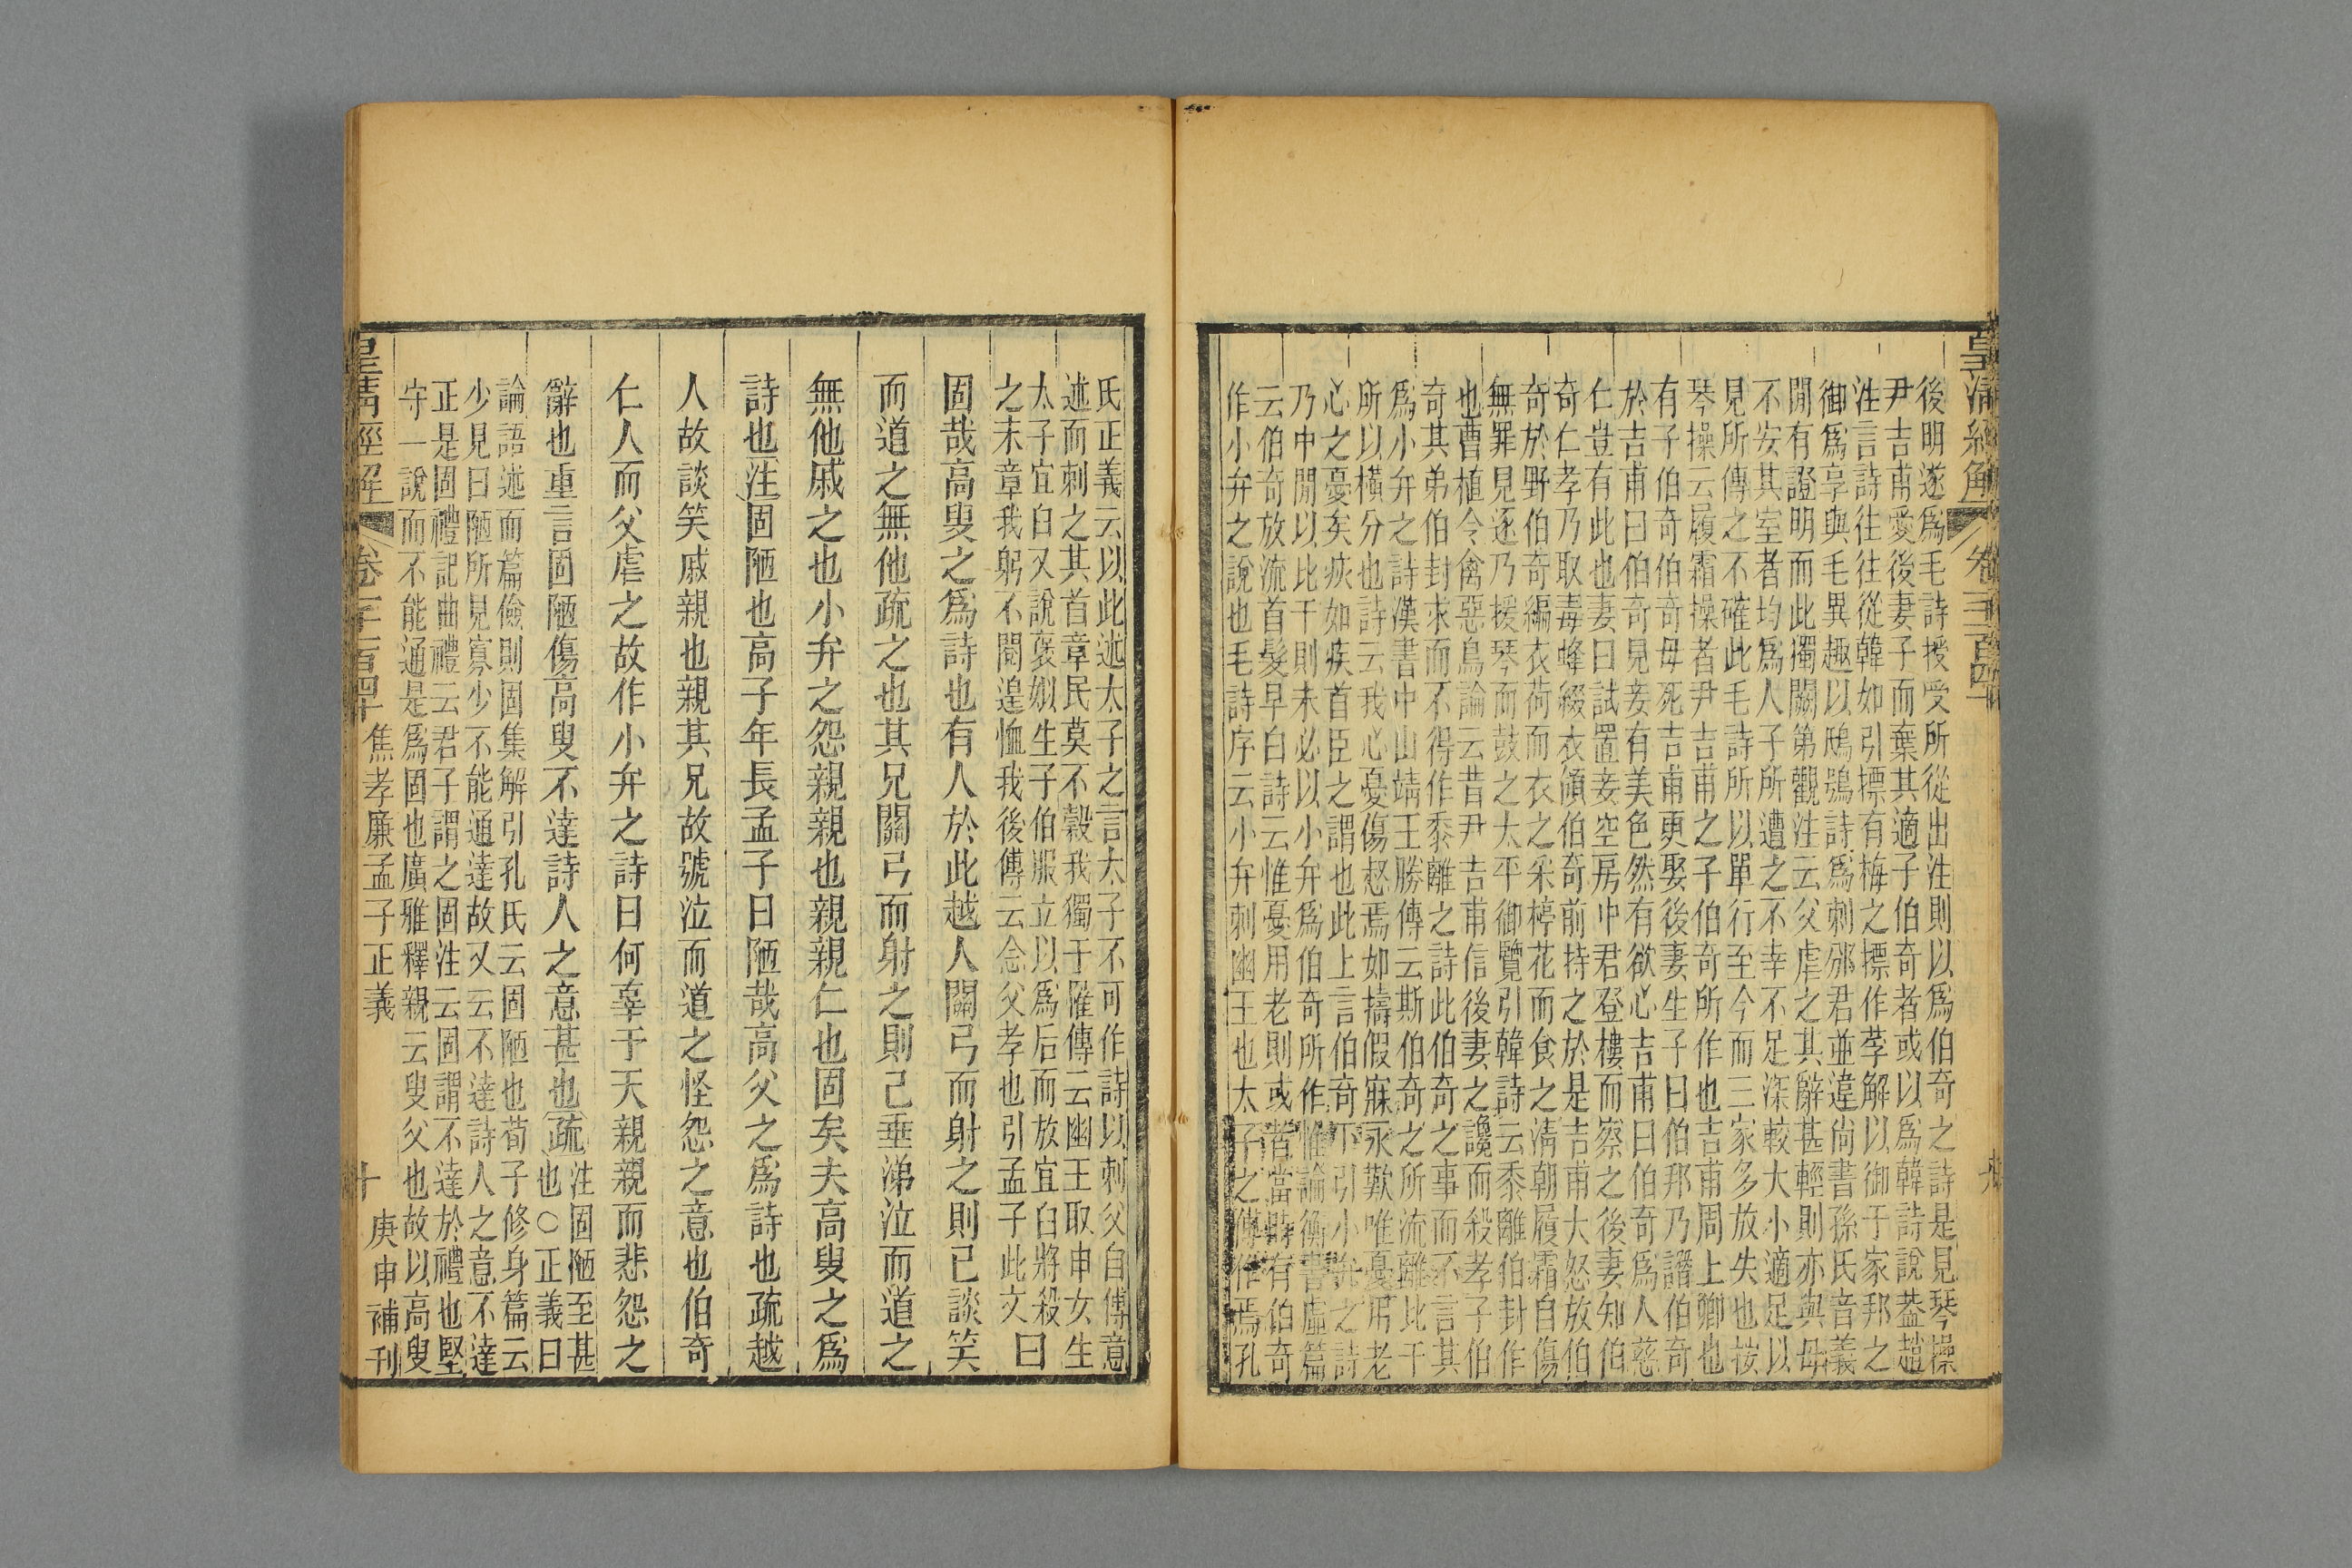 皇清經解
卷一千一百四十
九
後明遂爲毛詩授受所從出注則以爲伯奇之詩是見琴操
尹吉甫愛後妻子而棄其適子伯奇者或以爲韓詩說葢趙
注言詩往往從韓如引摽有梅之摽作莩解以御于家邦之
御爲享與毛異趣以鴟鴞詩爲刺邠君並違尙書孫氏音義
閒有證明而此獨闕第觀注云父虐之其辭甚輕則亦與母
不安其室者均爲人子所遭之不幸不足深較大小適足以
見所傳之不確此毛詩所以單行至今而三家多放失也按
琴操云履霜操者尹吉甫之子伯奇所作也吉甫周上卿也
有子伯奇伯奇母死吉甫更娶後妻生子曰伯邦乃譖伯奇
於吉甫曰伯奇見妾有美色然有欲心吉甫曰伯奇爲人慈
仁豈有此也妻曰試置妾空房中君登樓而察之後妻知伯
奇仁孝乃取毒蜂綴衣傾伯奇前持之於是吉甫大怒放伯
奇於野伯奇編衣荷而衣之采楟花而食之淸朝履霜自傷
無罪見逐乃援琴而鼓之太平御覽引韓詩云黍離伯封作
也曹植令禽惡鳥論云昔尹吉甫信後妻之讒而殺孝子伯
奇其弟伯封求而不得作黍離之詩此伯奇之事而不言其
爲小弁之詩漢書中山靖王勝傳云斯伯奇之所流離比干
所以橫分也詩云我心憂傷惄焉如擣假寐永歎唯憂用老
心之憂矣疢如疾首臣之謂也此上言伯奇下引小弁之詩
乃中閒以比干則未必以小弁爲伯奇所作惟論衡書虛篇
云伯奇放流首髮早白詩云惟憂用老則或者當時有伯奇
作小弁之說也毛詩序云小弁刺幽王也太子之傅作焉孔
氏正義云以此述太子之言太子不可作詩以刺父自傅意
述而刺之其首章民莫不穀我獨于罹傳云幽王取申女生
太子宜臼又說褒姒生子伯服立以爲后而放宜臼將殺
之末章我躬不閱遑恤我後傳云念父孝也引孟子此文曰
固哉高叟之爲詩也有人於此越人關弓而射之則己談笑
而道之無他疏之也其兄關弓而射之則己垂涕泣而道之
無他戚之也小弁之怨親親也親親仁也固矣夫高叟之爲
詩也注固陋也高子年長孟子曰陋哉高父之爲詩也疏越
人故談笑戚親也親其兄故號泣而道之怪怨之意也伯奇
仁人而父虐之故作小弁之詩曰何辜于天親親而悲怨之
辭也重言固陋傷高叟不達詩人之意甚也疏注固陋至甚
也○正義曰
論語述而篇儉則固集解引孔氏云固陋也荀子修身篇云
少見曰陋所見寡少不能通達故又云不達詩人之意不達
正是固禮記曲禮云君子謂之固注云固謂不達於禮也堅
守一說而不能通是爲固也廣雅釋親云叟父也故以高叟
皇清經解
卷一千一百四十
焦孝廉孟子正義
十
庚申補刊